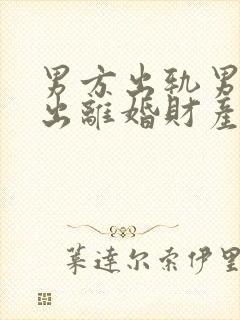 男方出轨男
出離婚財產
葉達尔索伊里